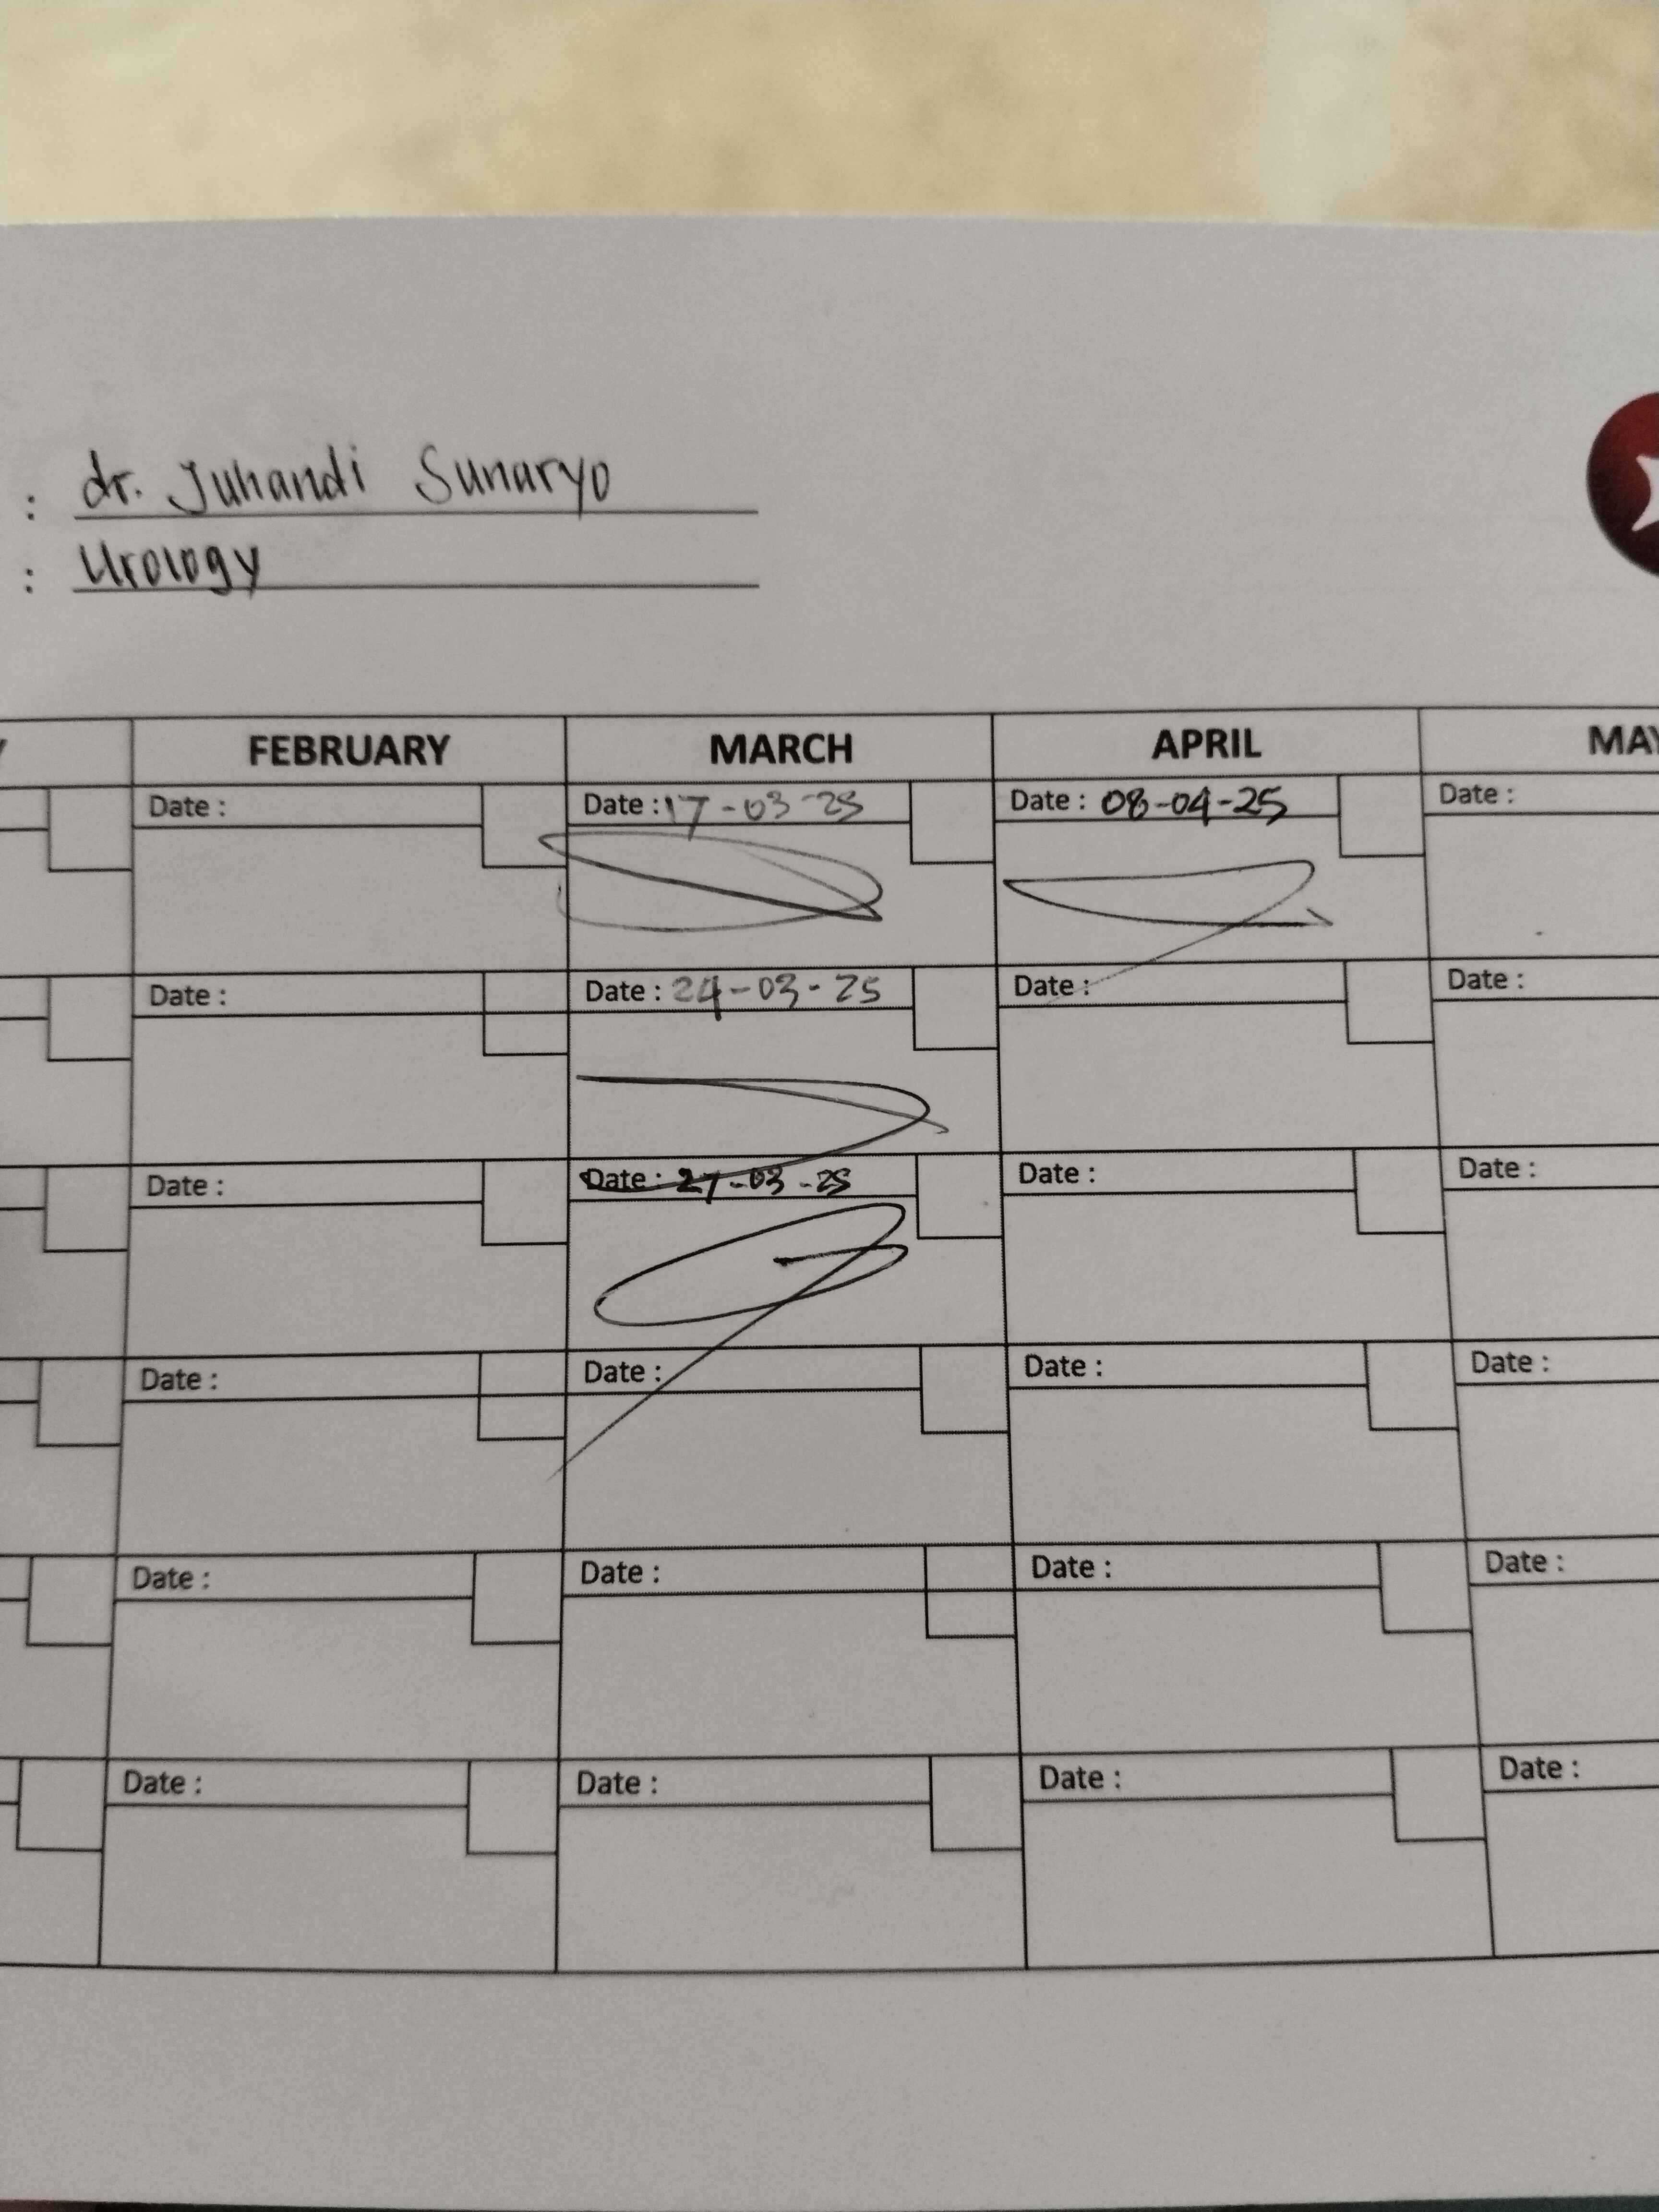 : dr. Juhandi Sunaryo
: Urology
FEBRUARY MARCH APRIL MAY
Date : Date : 17-03-25 Date : 08-04-25 Date :
Date : Date : 24-03-25 Date : Date :
Date : Date : 27-03-25 Date : Date :
Date : Date : Date : Date :
Date : Date : Date : Date :
Date : Date : Date : Date :